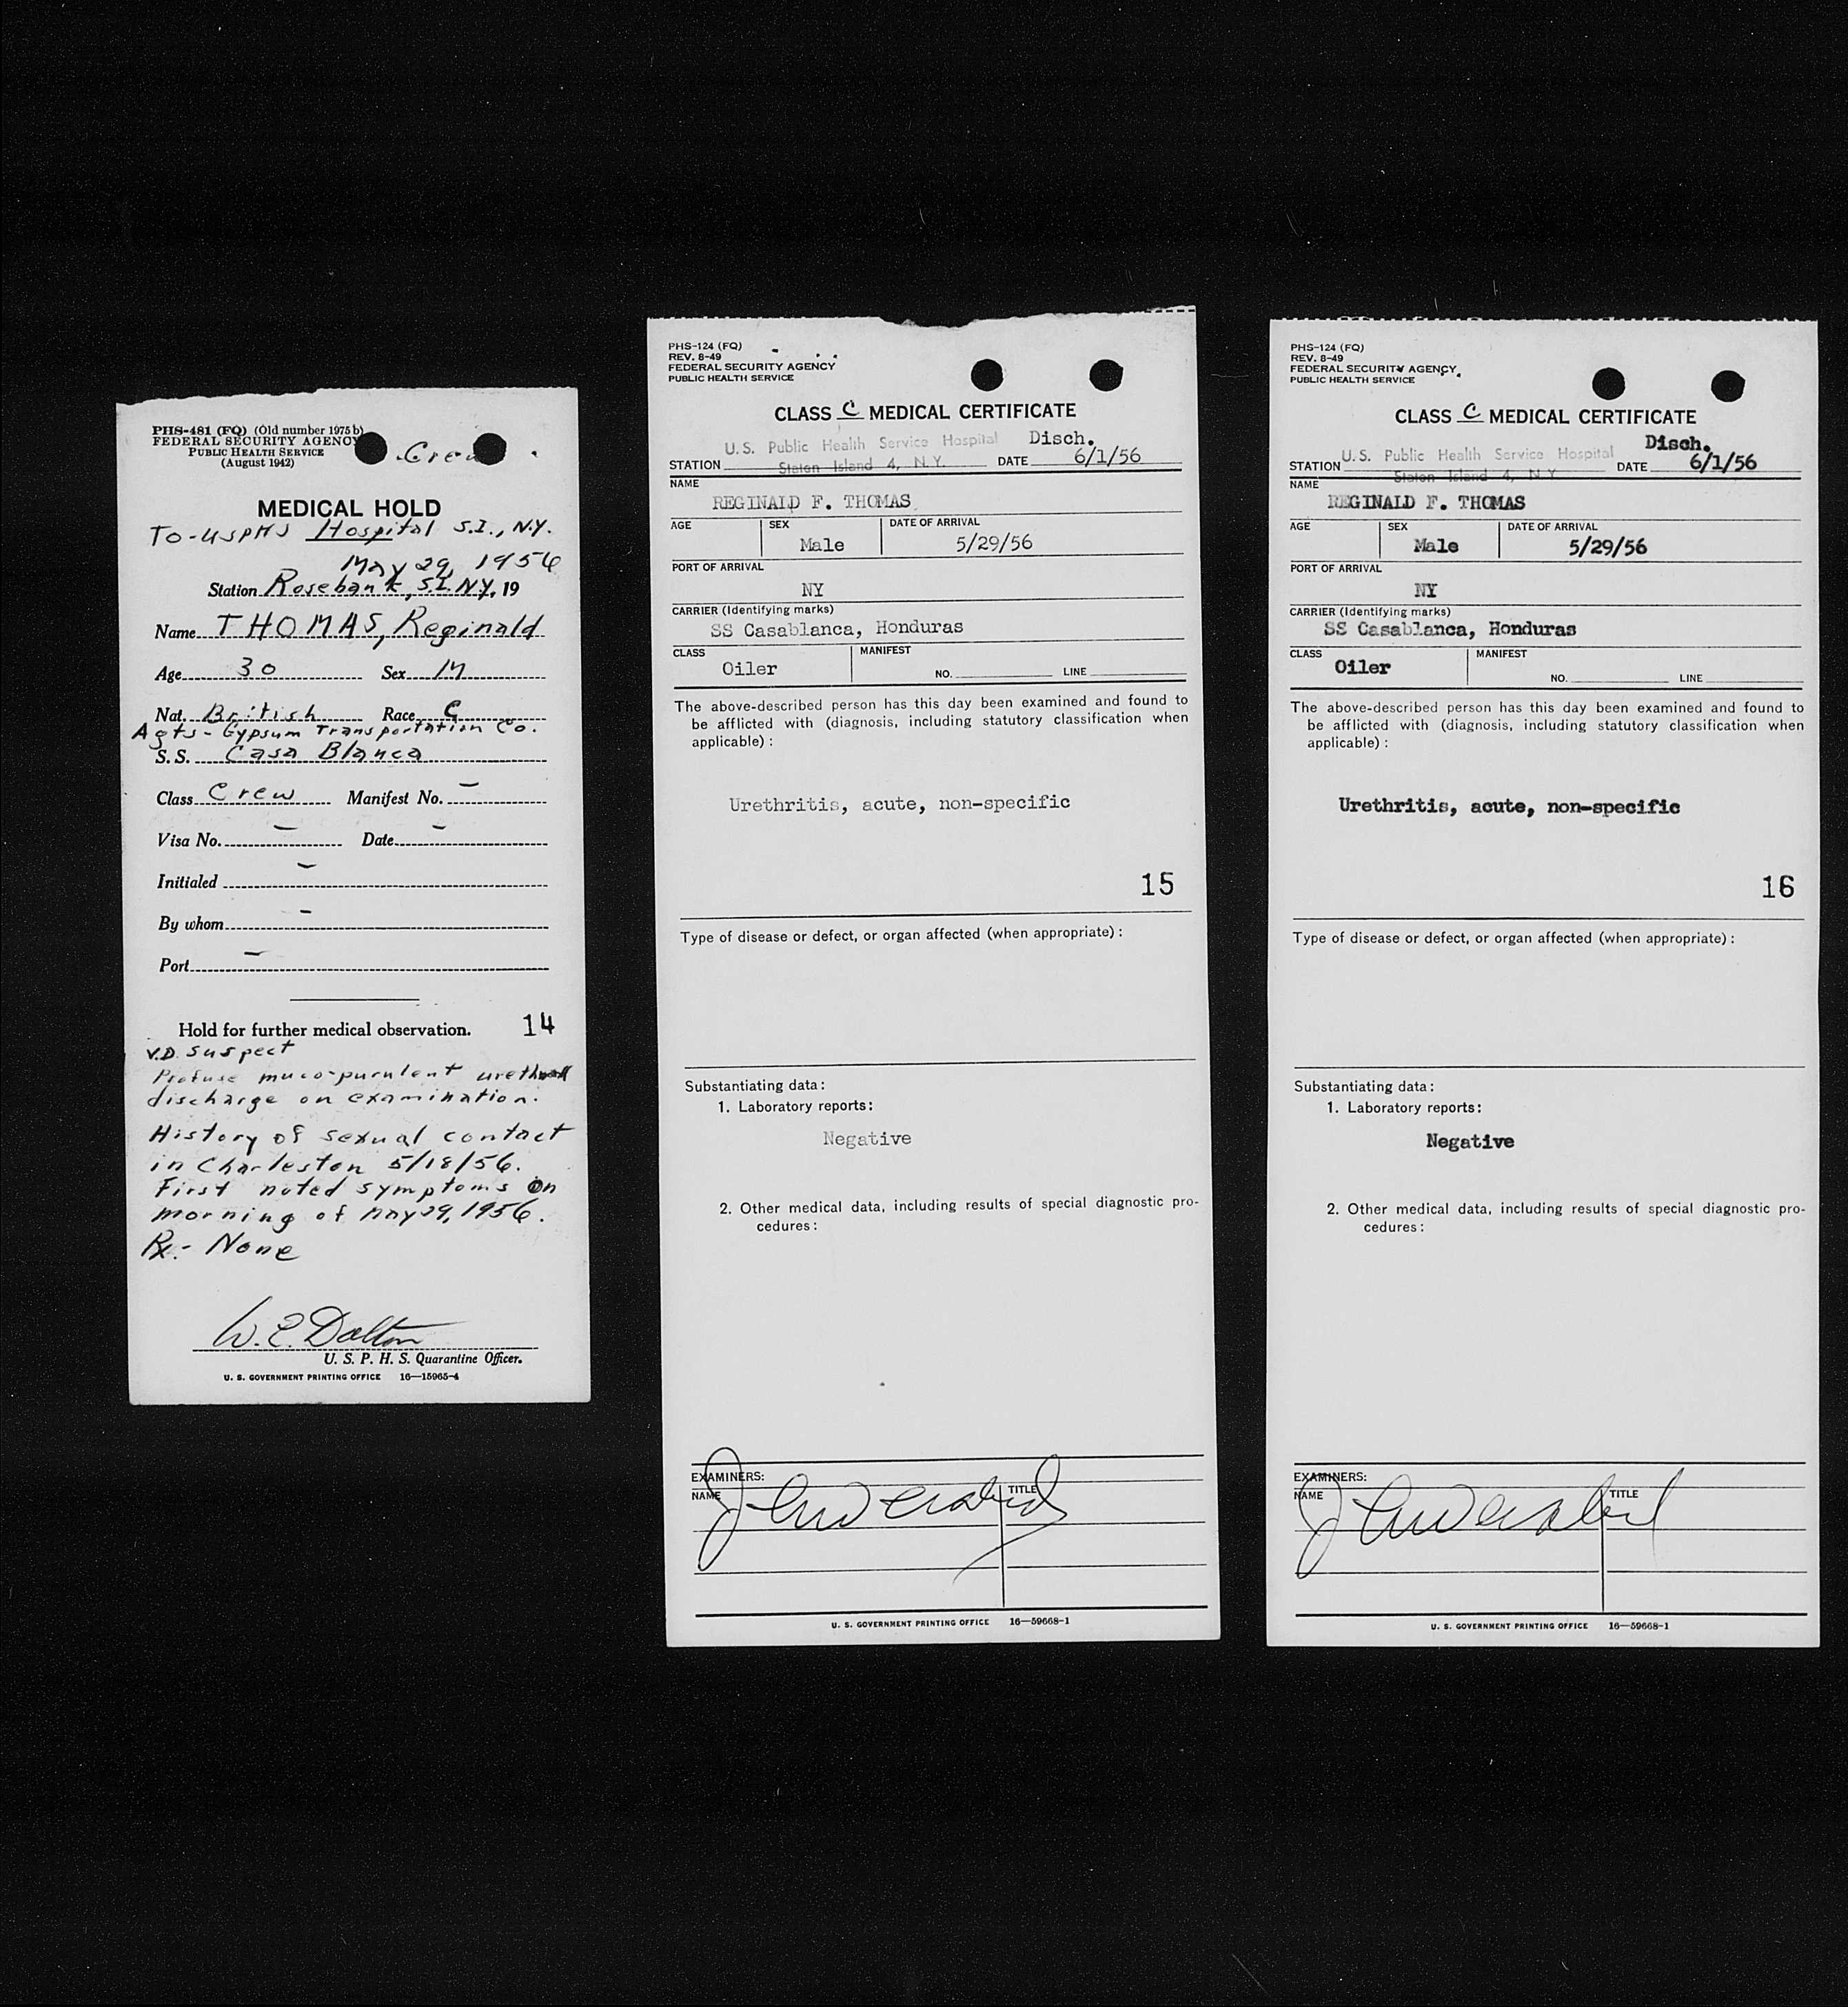 PHS-481 (FQ) (Old number 1975b)
FEDERAL SECURITY AGENCY
PUBLIC HEALTH SERVICE
(August 1942)
Crew
MEDICAL HOLD
To-USPHS Hospital S.I., N.Y.
May 29, 1956
Station Rosebank, S.I. N.Y., 19
Name THOMAS, Reginald
Age 30 Sex M
Nat. British Race C
Agts- Gypsum Transportation Co.
S. S. Casa Blanca
Class Crew Manifest No. -
Visa No. - Date -
Initialed -
By whom -
Port -
Hold for further medical observation. 14
V.D. Suspect
Profuse muco-purulent urethral
discharge on examination.
History of sexual contact
in Charleston 5/18/56.
First noted symptoms on
morning of May 29, 1956.
Rx.- None
W. E. Dalton
U. S. P. H. S. Quarantine Officer.
U. S. GOVERNMENT PRINTING OFFICE 16—15965-4
PHS-124 (FQ)
REV. 8-49
FEDERAL SECURITY AGENCY
PUBLIC HEALTH SERVICE
CLASS C MEDICAL CERTIFICATE
U.S. Public Health Service Hospital Disch.
STATION Staten Island 4, N.Y. DATE 6/1/56
NAME
REGINALD F. THOMAS
AGE SEX DATE OF ARRIVAL
Male 5/29/56
PORT OF ARRIVAL
NY
CARRIER (Identifying marks)
SS Casablanca, Honduras
CLASS MANIFEST
Oiler NO. LINE
The above-described person has this day been examined and found to
be afflicted with (diagnosis, including statutory classification when
applicable) :
Urethritis, acute, non-specific
15
Type of disease or defect, or organ affected (when appropriate) :
Substantiating data :
1. Laboratory reports:
Negative
2. Other medical data, including results of special diagnostic pro-
cedures :
EXAMINERS:
NAME TITLE
U. S. GOVERNMENT PRINTING OFFICE 16—59668-1
PHS-124 (FQ)
REV. 8-49
FEDERAL SECURITY AGENCY
PUBLIC HEALTH SERVICE
CLASS C MEDICAL CERTIFICATE
U.S. Public Health Service Hospital Disch.
STATION Staten Island 4, N.Y. DATE 6/1/56
NAME
REGINALD F. THOMAS
AGE SEX DATE OF ARRIVAL
Male 5/29/56
PORT OF ARRIVAL
NY
CARRIER (Identifying marks)
SS Casablanca, Honduras
CLASS MANIFEST
Oiler NO. LINE
The above-described person has this day been examined and found to
be afflicted with (diagnosis, including statutory classification when
applicable) :
Urethritis, acute, non-specific
16
Type of disease or defect, or organ affected (when appropriate) :
Substantiating data :
1. Laboratory reports:
Negative
2. Other medical data, including results of special diagnostic pro-
cedures :
EXAMINERS:
NAME TITLE
U. S. GOVERNMENT PRINTING OFFICE 16—59668-1